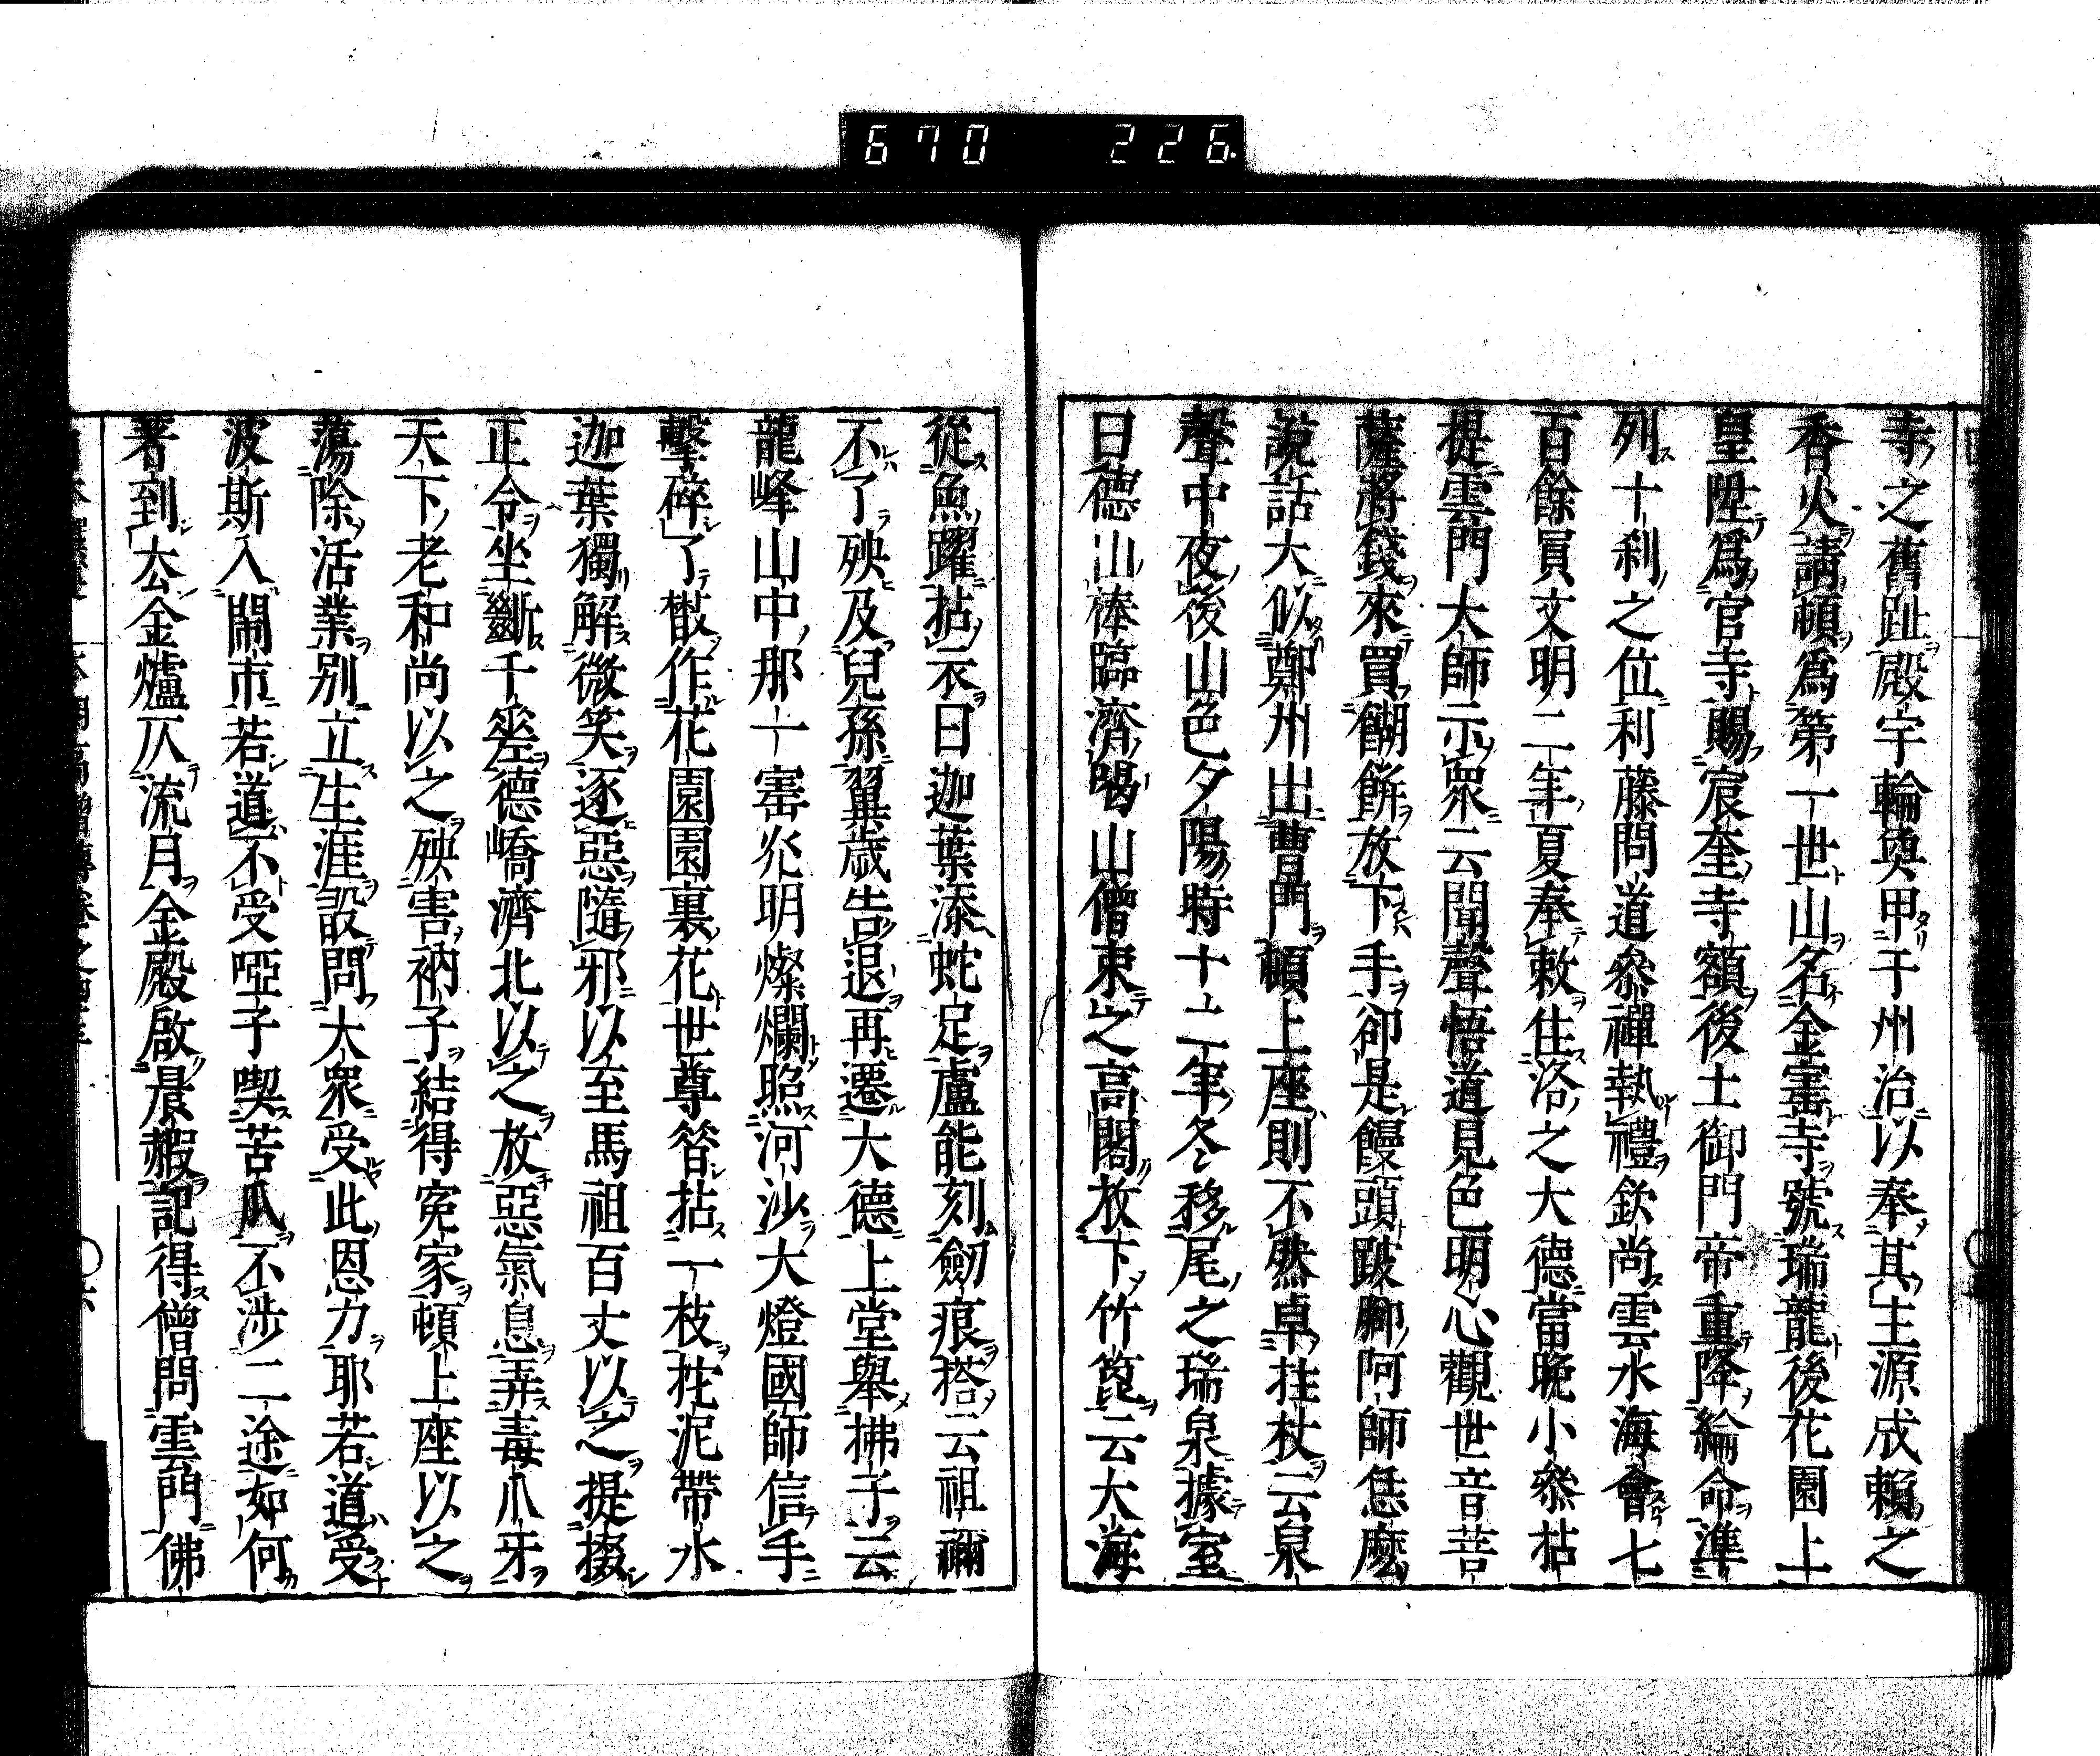 670 226
寺之舊趾殿宇輪奐甲于州治以奉其主源成賴之
香火請頓爲第一世山名金寶寺號瑞龍後花園上
皇陞爲官寺賜宸奎寺額後土御門帝重降綸命準
列十刹之位利藤問道叅禪執禮欽尚雲水海會七
百餘員文明二年夏奉敕住洛之大德當晚小叅拈
提雲門大師示衆云聞聲悟道見色明心觀世音菩
薩將錢來買餬餅放下手卻是饅頭跛腳阿師恁麼
說話大似鄭州出曹門頓上座則不然卓拄杖云泉
聲中夜後山色夕陽時十二年冬移尾之瑞泉據室
曰德山棒臨濟喝山僧束之高閣放下竹篦云大海
從魚躍拈衣曰迦葉添蛇足盧能刻劒痕搭云祖禰
不了殃及兒孫翼歲告退再遷大德上堂舉拂子云
龍峰山中那一寶炎明燦爛照河沙大燈國師信手
擊碎了散作花園園裏花世尊答拈一枝拕泥帶水
迦葉獨解微笑逐惡隨邪以至馬祖百丈以之提掇
正令坐斷千差德嶠濟北以之放惡氣息弄毒爪牙
天下老和尚以之殃害衲子結得寃家頓上座以之
蕩除活業別立生涯設問大衆受此恩力耶若道受
波斯入鬧市若道不受啞子喫苦瓜不涉二途如何
著到厺金爐仄流月金殿啟晨霞記得僧問雲門佛